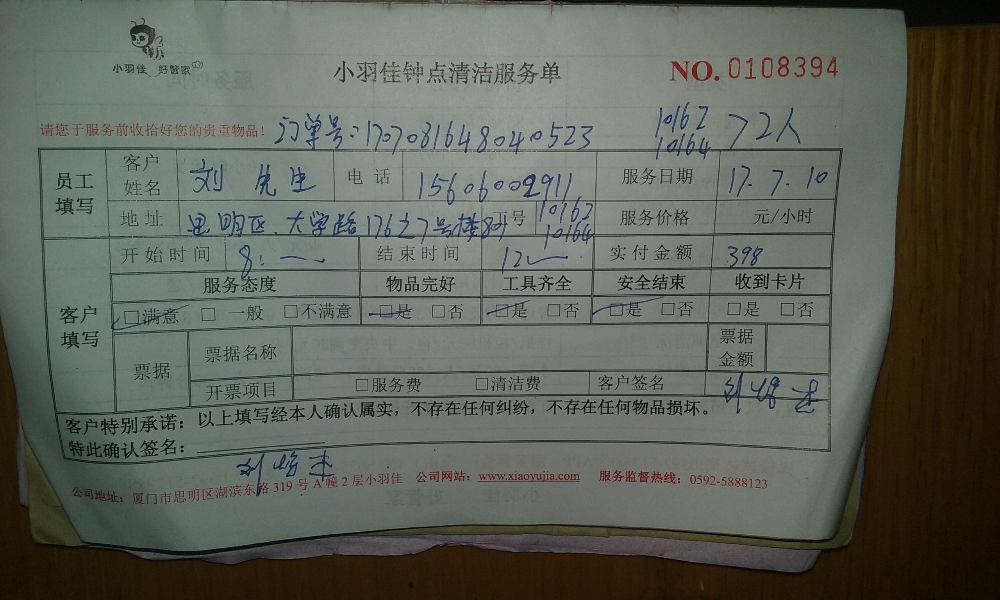 小羽佳 好管家
小羽佳钟点清洁服务单 NO. 0108394
请您于服务前收拾好您的贵重物品! 订单号:170708164804 0523 10162 10164 72人
员工填写 客户姓名 刘先生 电话 15606002911 服务日期 17.7.10
地址 思明区.大学路176之7号楼 工号 10162 10164 服务价格 元/小时
客户填写 开始时间 8:一 结束时间 12一 实付金额 398
服务态度 物品完好 工具齐全 安全结束 收到卡片
□满意 □一般 □不满意 □是 □否 □是 □否 □是 □否 □是 □否
票据 票据名称 票据金额
开票项目 □服务费 □清洁费 客户签名 刘
客户特别承诺:以上填写经本人确认属实,不存在任何纠纷,不存在任何物品损坏。
特此确认签名:
刘
公司地址:厦门市思明区湖滨东路319号A幢2层小羽佳 公司网站:www.xiaoyujia.com 服务监督热线:0592-5888123